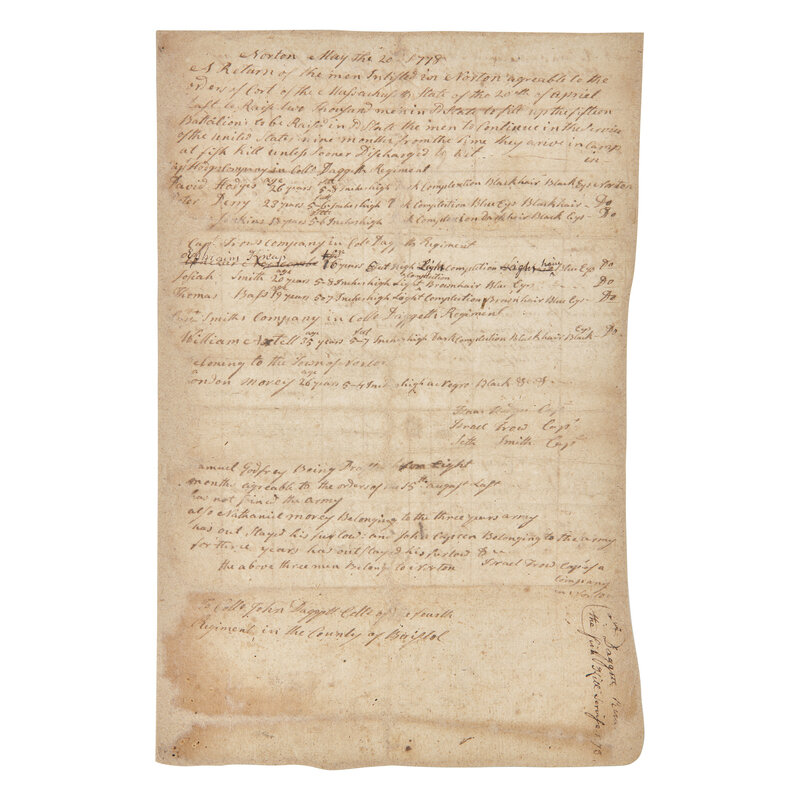 Norton May the 20 1778
A Return of the men Inlisted in Norton agreable to the
orders of Cort of the Massachusetts State of the 20th of April
Last to Raise two thousand men in sd State to fill up the fifteen
Battalions to be Raisd in sd State the men to Continue in the Servise
of the United States nine months from the time they arive in Camp
at fish Kill unless sooner Discharged
Company in Collo Daggetts Regiment
David Hodges age 26 years 5-8 Inches high Complection Black hair Black Eys Norton
Perry 23 years 5-6 Inches high Complection Blue Eys Black hair Do
18 years 5-6 Inches high Complection Dark hair Black Eys Do
Capt Trows Company in Collo Daggetts Regiment
16 years 5 feet high Light Complection Blue Eys Do
Josiah Smith age 20 years 5-8 Inches high Light Complection Brown hair Blue Eys Do
Thomas Bass 19 years 5-7 Inches high Light Complection Brown hair Blue Eys Do
Smiths Company in Collo Daggetts Regiment
William age 35 years 5-7 feet Inches high Dark Complection Black hair Black Eys Do
to the Town of Norton
Morey age 26 years 5-4 Inches high a Negro Black
Capt
Israel Trow Capt
Seth Smith Capt
amuel Godfrey Being Eight
months agreable to the orders of 15th august Last
has not Joined the army
also Nathaniel Morey Belonging to the three years army
has out Stayed his furlow and John Capren Belonging to the army
for three years has out stayed his furlow
the above three men Belong to Norton Israel Trow Capt of a
Company
in Norton
To Collo John Daggett Collo of Fourth
Regiment in the County of Bristol
Daggett
the fish Kill Servise 78